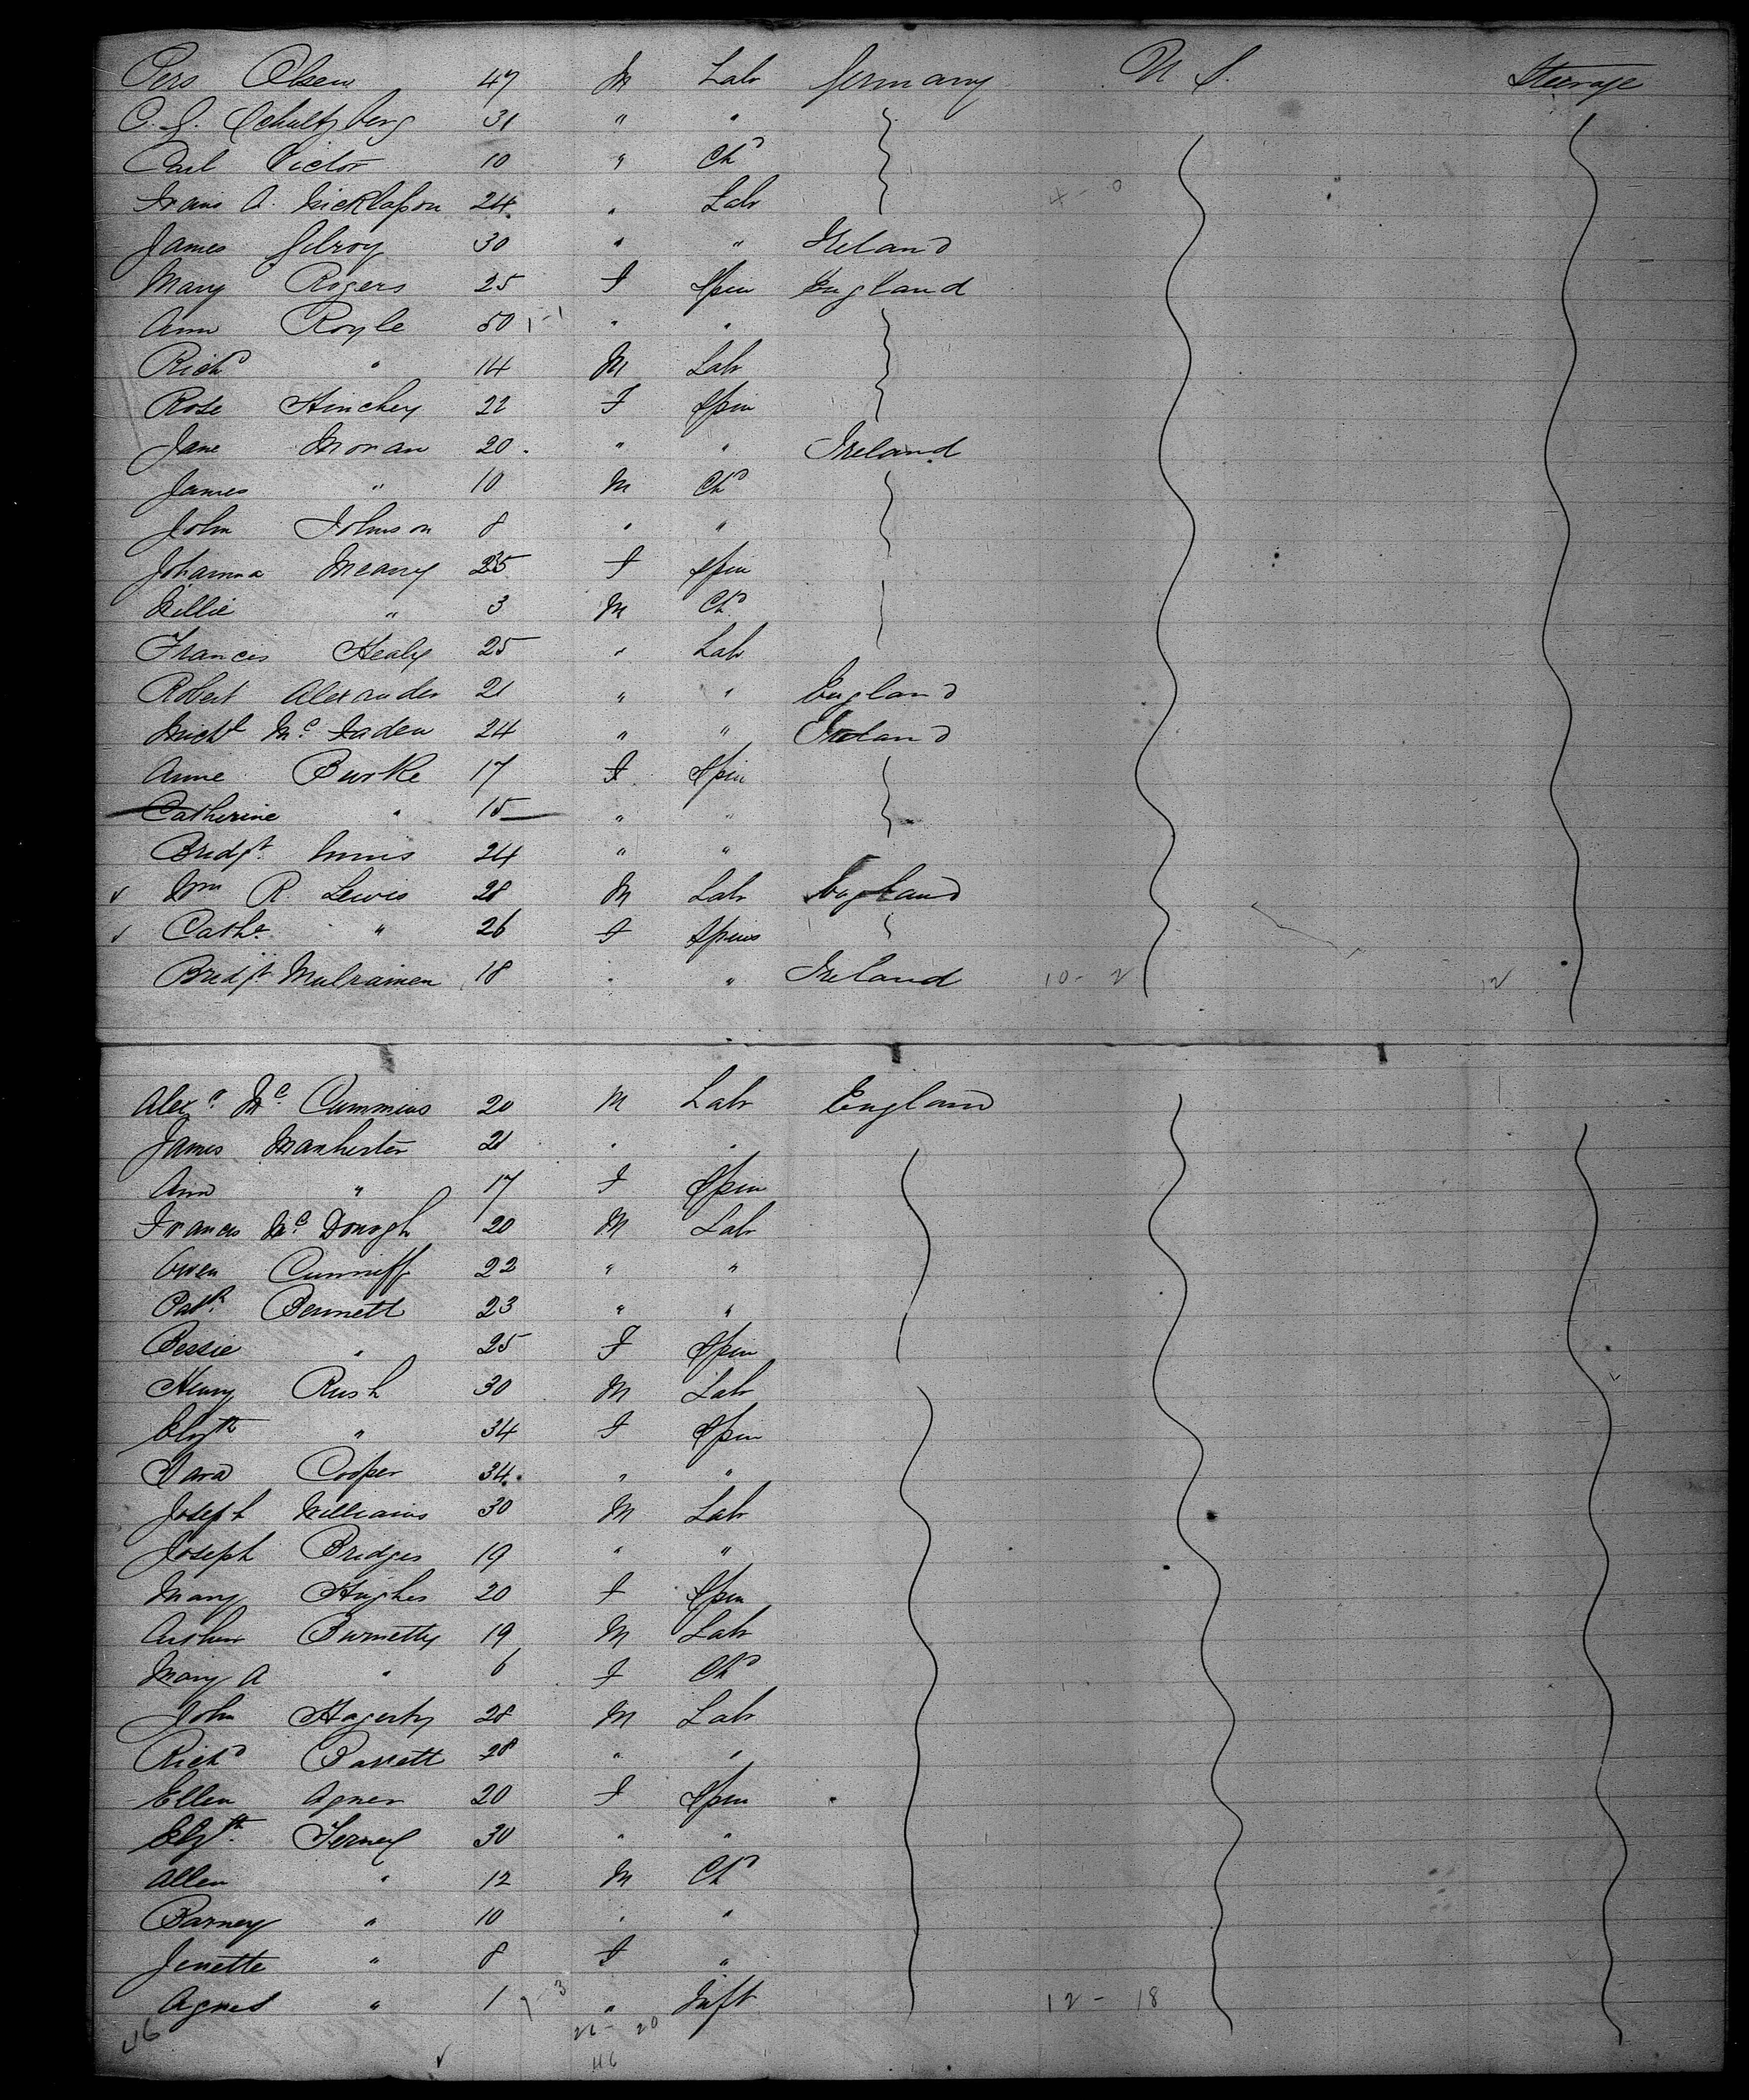 Pers Olsen 47 M Labr Germany U S. Steerage
C. J. Schultzberg 31 " "
Carl Victor 10 " Chd
Frans A. Nicklasson 24 " Labr 4 - 0
James Gilroy 30 " " Ireland
Mary Rogers 25 F Spin England
Ann Royle 50 1-1 " "
Richd " 14 M Labr
Rose Hinchey 22 F Spin
Jane Moran 20 " " Ireland
James " 10 M Chd
John Johnson 8 " "
Johanna Meany 25 F Spin
Willie " 3 M Chd
Frances Healy 25 " Labr
Robert Alexander 21 " " England
Michl Mc Faden 24 " " Ireland
Anne Burke 17 F Spin
Catherine " 15 " "
Bridgt Innis 24 " "
Wm R. Lewis 28 M Labr England
Cathe " 26 F Spins
Bridgt Mulrainen 18 " " Ireland 10 - 2 12
Alexr Mc Cummins 20 M Labr England
James Manhester 21 " "
Ann " 17 F Spin
Francis Mc Donogh 20 M Labr
Owen Cunniff 22 " "
Patk Bennett 23 " "
Bessie " 25 F Spin
Henry Rush 30 M Labr
Elizth " 34 F Spin
Sara Cooper 34 " "
Joseph Williams 30 M Labr
Joseph Bridges 19 " "
Mary Hughes 20 F Spin
Arthur Burnetty 19 M Labr
Mary A " 6 F Chd
John Hagerty 28 M Labr
Richd Barrett 28 " "
Ellen Agner 20 F Spin
Elizth Ferney 30 " "
Allen " 12 M Chd
Barney " 10 " "
Jenette " 8 F "
Agnes " 1 7-3 " Inft 12 - 18
46 26 - 20
46